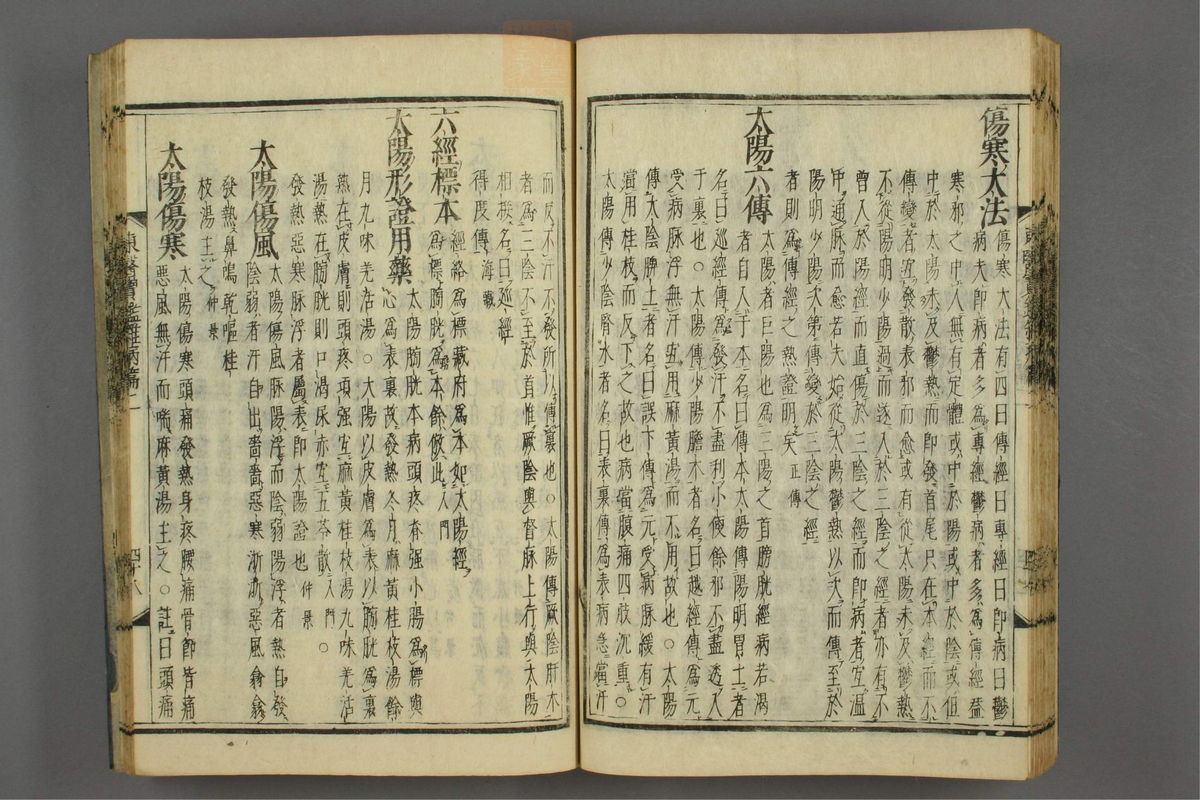 傷寒大法
傷寒大法有四曰傳經曰專經曰即病曰鬱
病夫即病者多為專經鬱病者多為傳經葢
寒邪之中人無有定體或中於陽或中於陰或但
中於太陽未及鬱熱而即發首尾只在本經而不
傳變者宜發散表邪而愈或有從太陽未及鬱熱
不從陽明少陽過而遂入於三陰之經者亦有不
曾入於陽而直傷於三陰之經而即病者宜溫
中通脉而愈若夫始從太陽鬱熱以次而傳至於
陽明少陽次第傳變於三陰之經
者則為傳經之熱證明矣正傳
太陽六傳
太陽者巨陽也為三陽之首膀胱經病若渴
者自入于本名曰傳本太陽傳陽明胃土者
名曰巡經傳為發汗不盡利小便餘邪不盡透入
于裏也○太陽傳少陽膽木者名曰越經傳為元
受病脉浮無汗宜用麻黃湯而不用故也○太陽
傳太陰脾土者名曰誤下傳為元受病脉緩有汗
當用桂枝而反下之故也病當腹痛四肢沉重○
太陽傳少陰腎水者名曰表裏傳為表病急當汗
而反不汗不發所以傳裏也○太陽傳厥陰肝木
者為三陰不至於首惟厥陰與督脉上行與太陽
相接名曰巡經
得度傳海藏
六經標本
經絡為標藏府為本如太陽經
為標膀胱為本餘倣此入門
太陽形證用藥
太陽膀胱本病頭疼脊强小腸為標與
心為表裏故發熱冬月麻黃桂枝湯餘
月九味羌活湯○太陽以皮膚為表以膀胱為裏
熱在皮膚則頭疼項强宜麻黃桂枝湯九味羌活
湯熱在膀胱則口渴尿赤宜五苓散入門○
發熱惡寒脉浮者屬表即太陽證也仲景
太陽傷風
太陽傷風脉陽浮而陰弱陽浮者熱自發
陰弱者汗自出嗇嗇惡寒淅淅惡風翕翕
發熱鼻鳴乾嘔桂
枝湯主之仲景
太陽傷寒
太陽傷寒頭痛發熱身疼腰痛骨節皆痛
惡風無汗而喘麻黃湯主之○註曰頭痛
東醫寶鑑雜病篇二
四十八